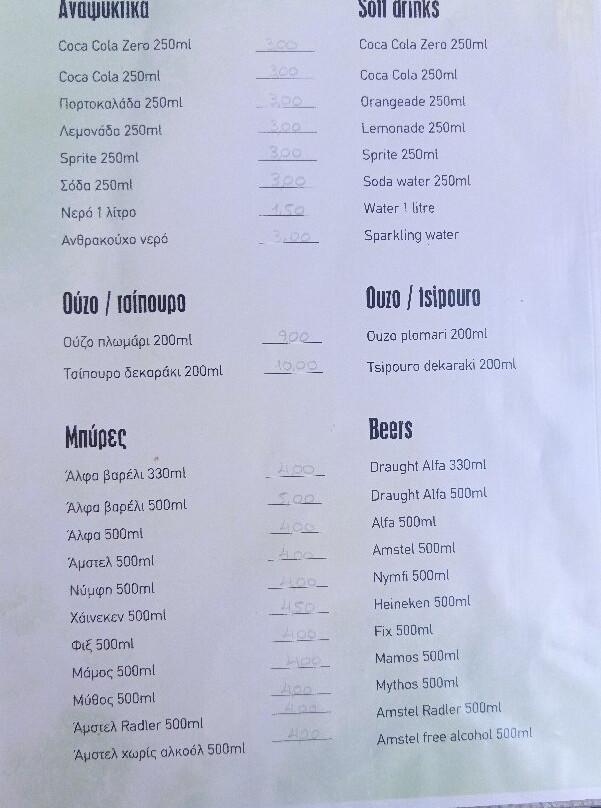 Αναψυκτικά Soft drinks
Coca Cola Zero 250ml 3,00 Coca Cola Zero 250ml
Coca Cola 250ml 3,00 Coca Cola 250ml
Πορτοκαλάδα 250ml 3,00 Orangeade 250ml
Λεμονάδα 250ml 3,00 Lemonade 250ml
Sprite 250ml 3,00 Sprite 250ml
Σόδα 250ml 3,00 Soda water 250ml
Νερό 1 λίτρο 1,50 Water 1 litre
Ανθρακούχο νερό 3,00 Sparkling water
Ούζο / τσίπουρο Ouzo / tsipouro
Ούζο πλωμάρι 200ml 9,00 Ouzo plomari 200ml
Τσίπουρο δεκαράκι 200ml 10,00 Tsipouro dekaraki 200ml
Μπύρες Beers
Άλφα βαρέλι 330ml 4,00 Draught Alfa 330ml
Άλφα βαρέλι 500ml 5,00 Draught Alfa 500ml
Άλφα 500ml 4,00 Alfa 500ml
Άμστελ 500ml 4,00 Amstel 500ml
Νύμφη 500ml 4,00 Nymfi 500ml
Χάινεκεν 500ml 4,50 Heineken 500ml
Φιξ 500ml 4,00 Fix 500ml
Μάμος 500ml 4,00 Mamos 500ml
Μύθος 500ml 4,00 Mythos 500ml
Άμστελ Radler 500ml 4,00 Amstel Radler 500ml
Άμστελ χωρίς αλκοόλ 500ml 4,00 Amstel free alcohol 500ml